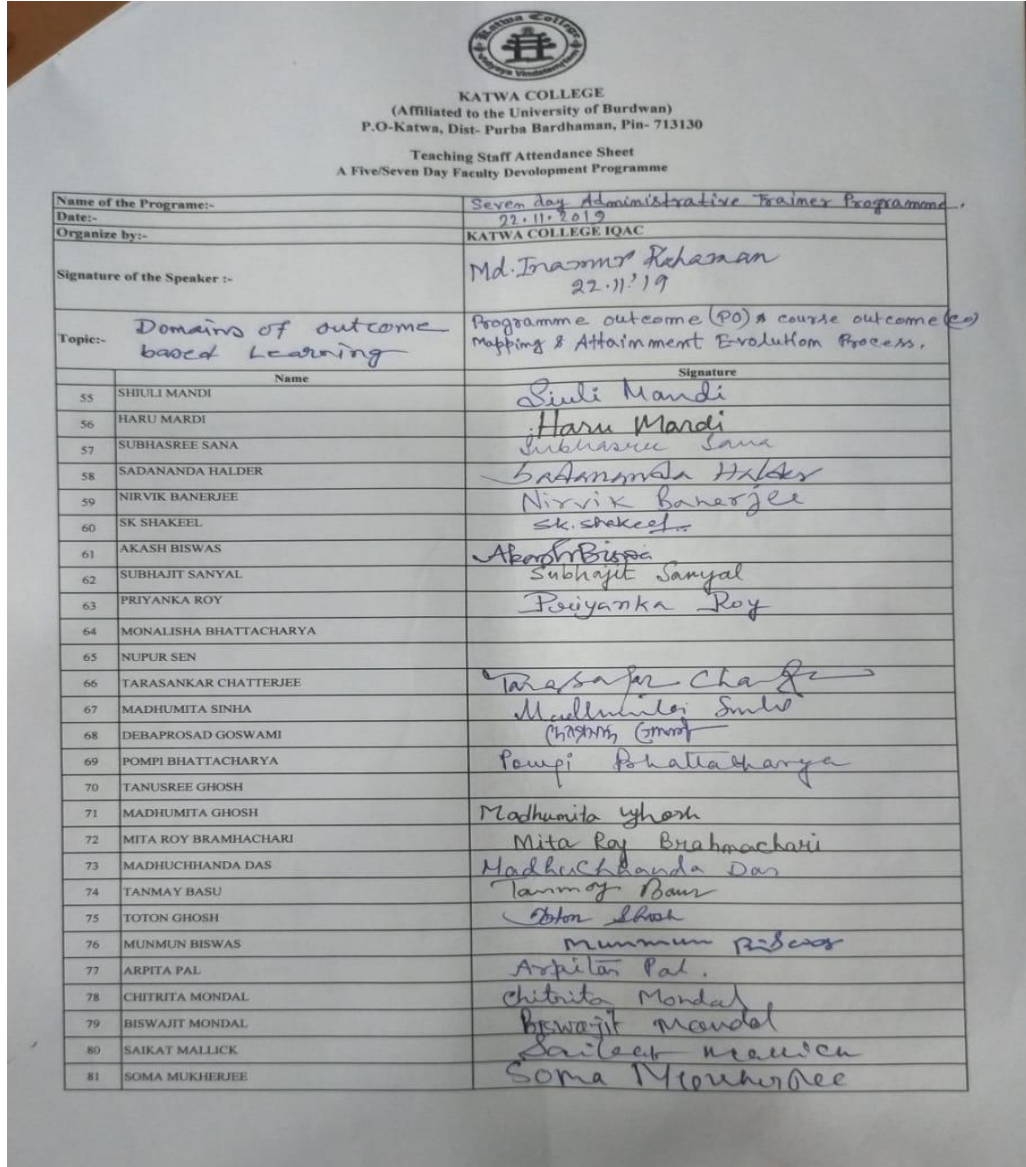 Katwa College
Vidyaya Vindateamritam
KATWA COLLEGE
(Affiliated to the University of Burdwan)
P.O-Katwa, Dist- Purba Bardhaman, Pin- 713130
Teaching Staff Attendance Sheet
A Five/Seven Day Faculty Devolopment Programme
Name of the Programe:- Seven day Administrative Trainer Programme.
Date:- 22.11.2019
Organize by:- KATWA COLLEGE IQAC
Signature of the Speaker :- Md. Inamur Rahaman
22.11.'19
Topic:- Domains of outcome based Learning
Programme outcome (PO) & course outcome (co)
Mapping & Attainment Evolution Process.
Name Signature
55 SHIULI MANDI Siuli Mandi
56 HARU MARDI Haru Mardi
57 SUBHASREE SANA Subhasree Sana
58 SADANANDA HALDER Sadananda Halder
59 NIRVIK BANERJEE Nirvik Banerjee
60 SK SHAKEEL Sk. Shakeel
61 AKASH BISWAS Akash Biswas
62 SUBHAJIT SANYAL Subhajit Sanyal
63 PRIYANKA ROY Priyanka Roy
64 MONALISHA BHATTACHARYA
65 NUPUR SEN
66 TARASANKAR CHATTERJEE
67 MADHUMITA SINHA Madhumita Sinha
68 DEBAPROSAD GOSWAMI
69 POMPI BHATTACHARYA Pompi Bhattacharya
70 TANUSREE GHOSH
71 MADHUMITA GHOSH Madhumita Ghosh
72 MITA ROY BRAMHACHARI Mita Roy Brahmachari
73 MADHUCHHANDA DAS Madhuchhanda Das
74 TANMAY BASU Tanmoy Basu
75 TOTON GHOSH Toton Ghosh
76 MUNMUN BISWAS Munmun Biswas
77 ARPITA PAL Arpita Pal.
78 CHITRITA MONDAL Chitrita Mondal
79 BISWAJIT MONDAL Biswajit Mondal
80 SAIKAT MALLICK Saikat Mallick
81 SOMA MUKHERJEE Soma Mukherjee